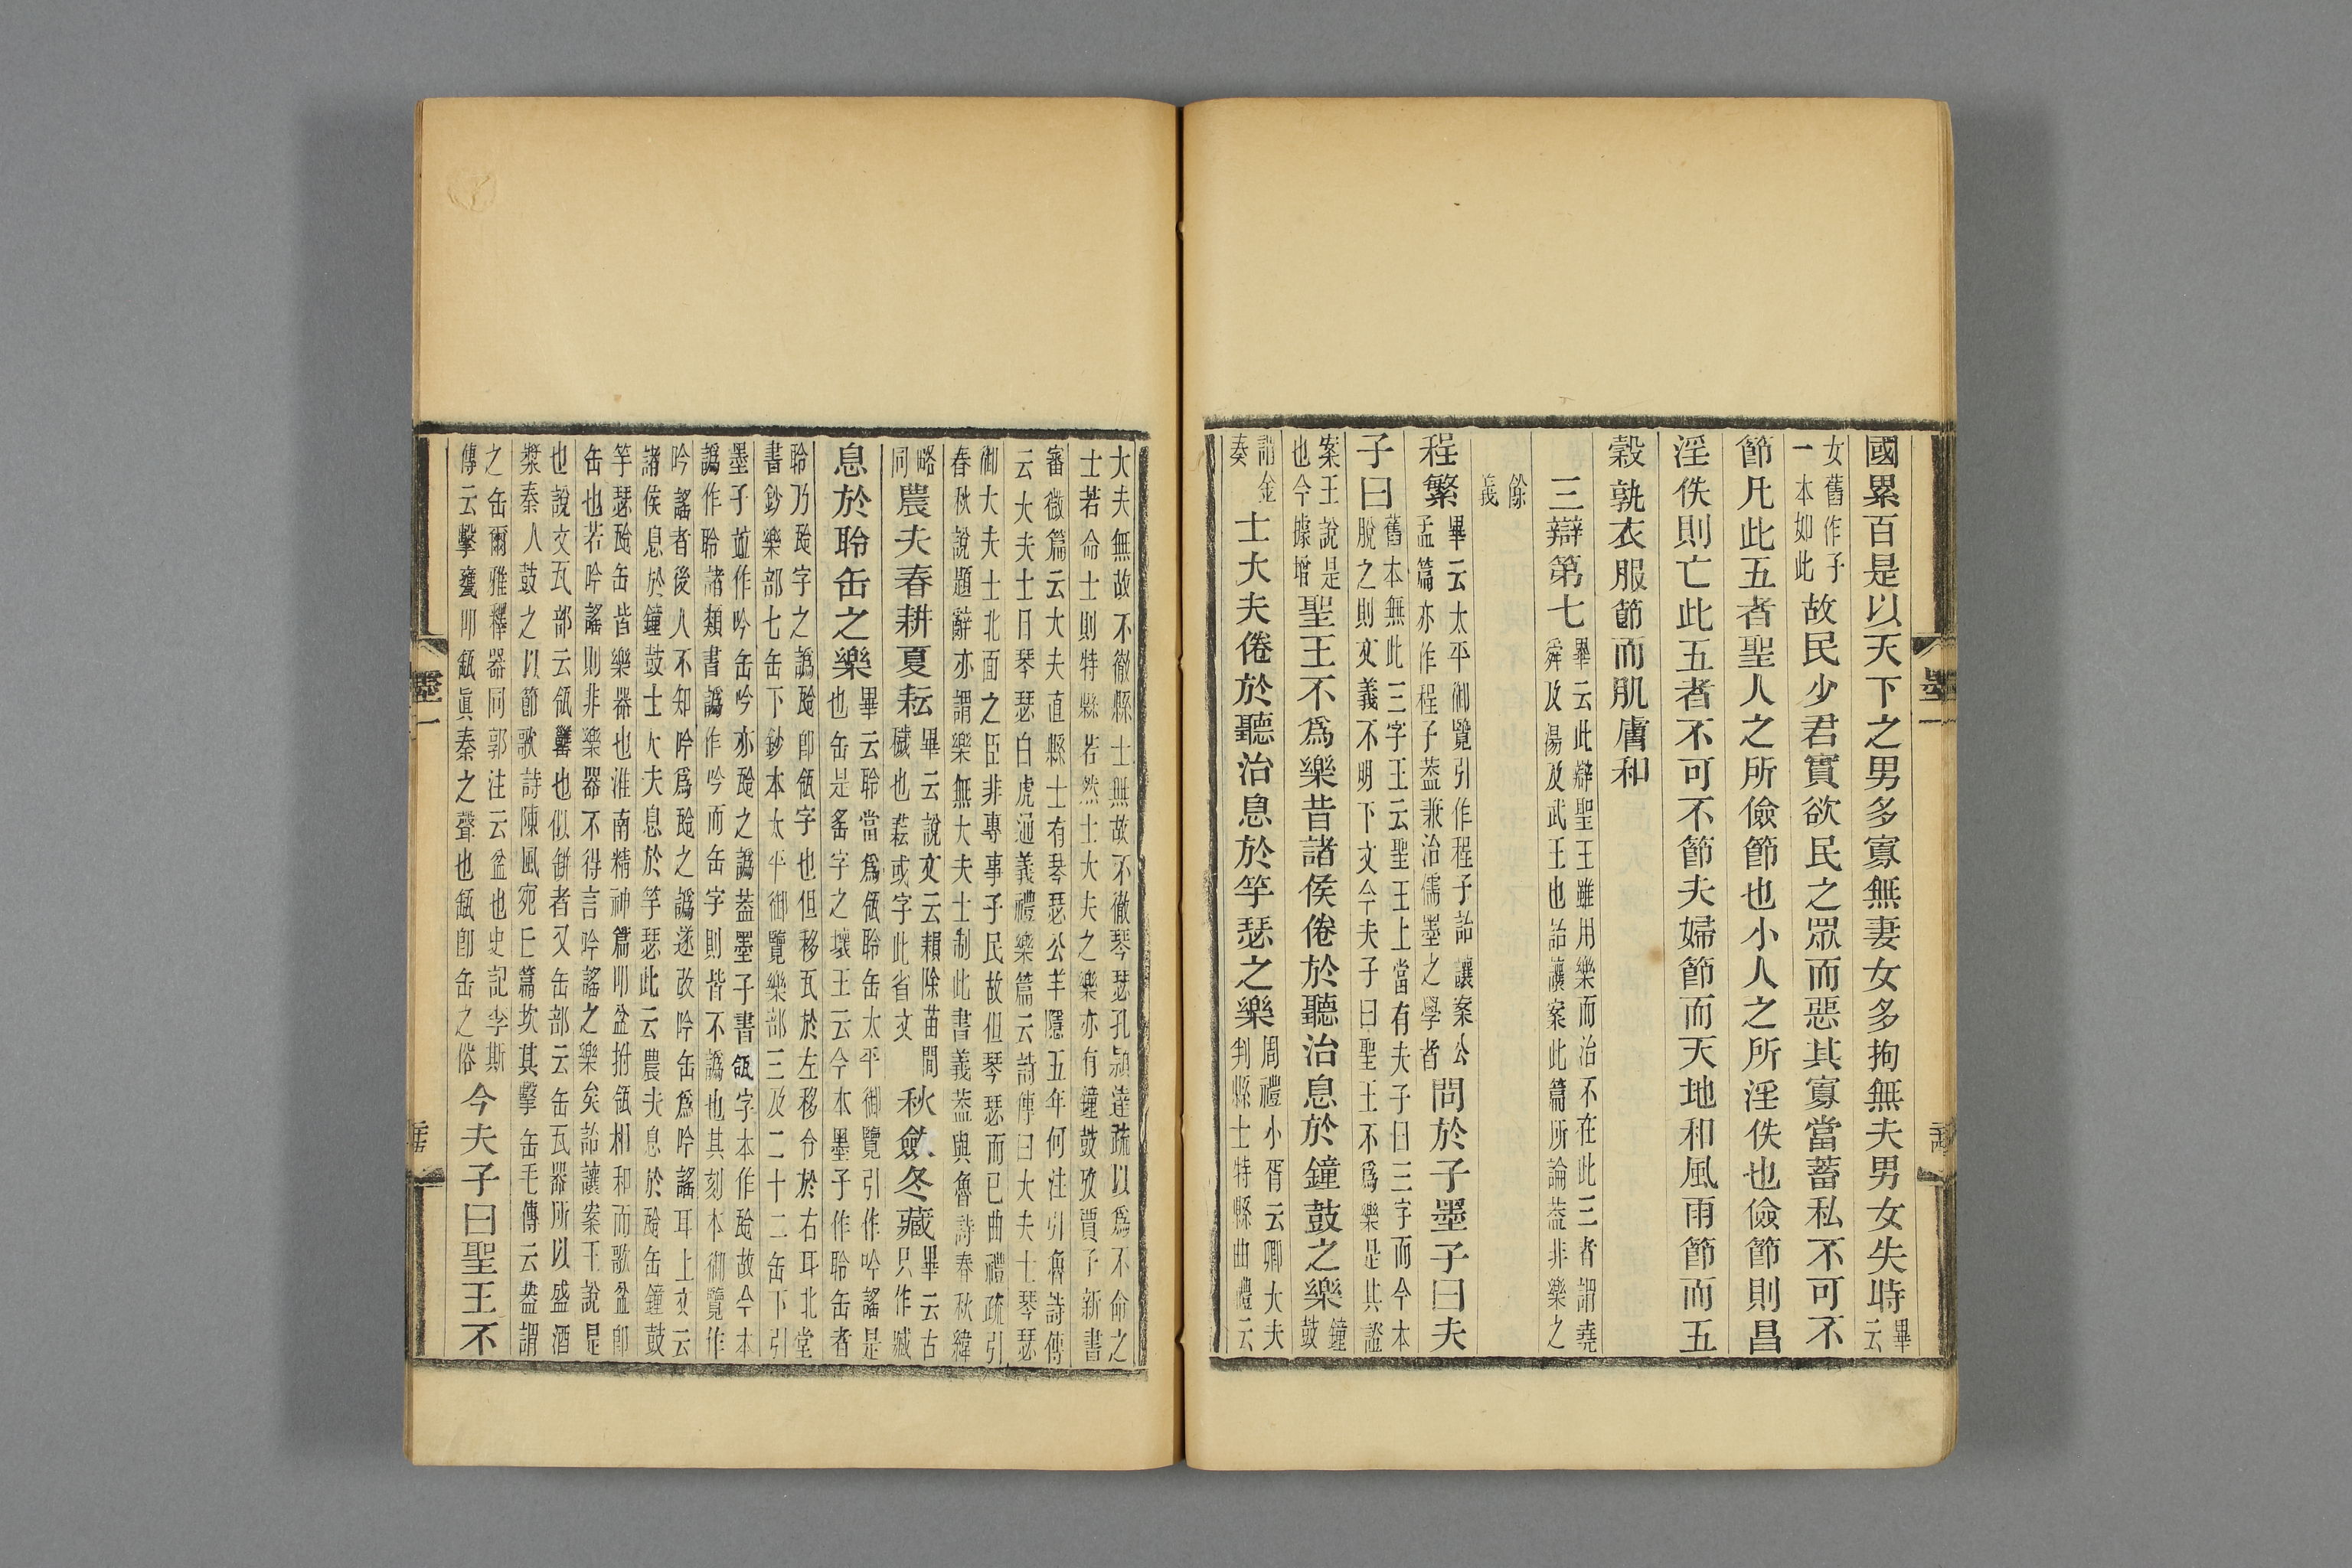 國累百是以天下之男多寡無妻女多拘無夫男女失時畢云
女舊作子一本如此故民少君實欲民之眾而惡其寡當蓄私不可不
節凡此五者聖人之所儉節也小人之所淫佚也儉節則昌
淫佚則亡此五者不可不節夫婦節而天地和風雨節而五
穀孰衣服節而肌膚和
三辯第七畢云此辯聖王雖用樂而治不在此三者謂堯舜及湯及武王也詒讓案此篇所論葢非樂之
餘義
程繁畢云太平御覽引作程子詒讓案公孟篇亦作程子葢兼治儒墨之學者問於子墨子曰夫
子曰舊本無此三字王云聖王上當有夫子曰三字而今本脫之則文義不明下文今夫子曰聖王不爲樂是其證
案王說是也今據增聖王不爲樂昔諸侯倦於聽治息於鐘鼓之樂鐘鼓
謂金奏士大夫倦於聽治息於竽瑟之樂周禮小胥云卿大夫判縣士特縣曲禮云
大夫無故不徹縣士無故不徹琴瑟孔穎達疏以爲不命之士若命士則特縣若然士大夫之樂亦有鐘鼓攷賈子新書
審微篇云大夫直縣士有琴瑟公羊隱五年何注引魯詩傳云大夫士日琴瑟白虎通義禮樂篇云詩傳曰大夫士琴瑟
御大夫士北面之臣非專事子民故但琴瑟而已曲禮疏引春秋說題辭亦謂樂無大夫士制此書義葢與魯詩春秋緯
略同農夫春耕夏耘畢云說文云耨除苗閒穢也耘或字此省文秋斂冬藏畢云古只作臧
息於聆缶之樂畢云聆當爲瓴聆缶太平御覽引作吟謠是也缶是䍃字之壞王云今本墨子作聆缶者
聆乃瓴字之譌瓴卽瓴字也但移瓦於左移令於右耳北堂書鈔樂部七缶下鈔本太平御覽樂部三及二十二缶下引
墨子竝作吟缶吟亦瓴之譌葢墨子書瓴字本作瓴故今本譌作聆諸類書譌作吟而缶字則皆不譌也其刻本御覽作
吟謠者後人不知吟爲瓴之譌遂改吟缶爲吟謠耳上文云諸侯息於鐘鼓士大夫息於竽瑟此云農夫息於瓴缶鐘鼓
竽瑟瓴缶皆樂器也淮南精神篇叩盆拊瓴相和而歌盆卽缶也若吟謠則非樂器不得言吟謠之樂矣詒讓案王說是
也說文瓦部云瓴罌也似缾者又缶部云缶瓦器所以盛酒漿秦人鼓之以節歌詩陳風宛丘篇坎其擊缶毛傳云盎謂
之缶爾雅釋器同郭注云盆也史記李斯傳云擊甕叩瓴眞秦之聲也瓴卽缶之俗今夫子曰聖王不
墨一
墨一